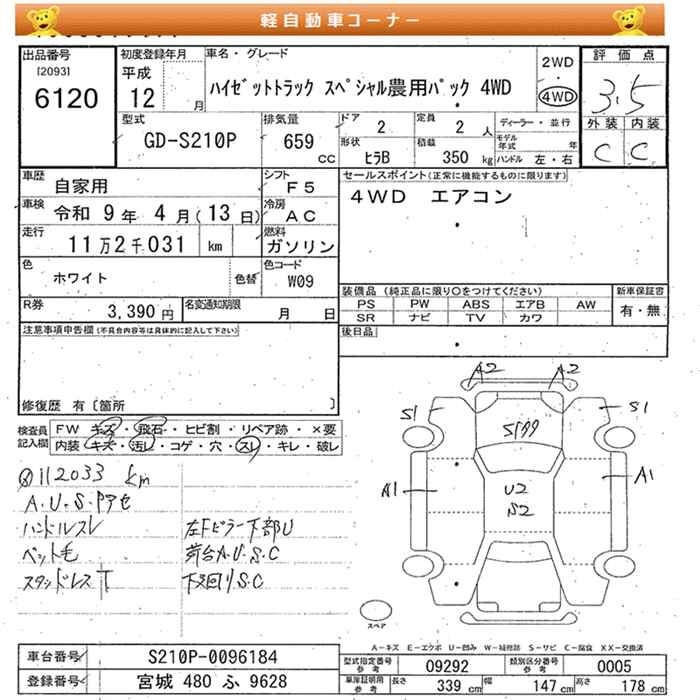 軽自動車コーナー
出品番号
[2093]
6120
初度登録年月
平成
12 月
車名・グレード
ハイゼットトラック スペシャル農用パック 4WD
2WD
・
4WD
評価点
3.5
外装 内装
C C
型式
GD-S210P
排気量
659
cc
ドア
2
定員
2 人
形状
ヒラB
積載
350 kg
ディーラー・並行
モデル
年式 年
ハンドル 左・右
車歴
自家用
シフト
F5
車検
令和 9年 4月(13日)
冷房
AC
走行
11万2千031 km
燃料
ガソリン
色
ホワイト
色替
色コード
W09
R券
3,390円
名変通知期限
月 日
セールスポイント(正常に機能するものに限ります)
4WD エアコン
装備品(純正品に限り○をつけてください)
PS PW ABS エアB AW
SR ナビ TV カワ
新車保証書
有・無
後日品
注意事項申告欄(不具合内容等は具体的に記入して下さい)
修復歴 有〔箇所 〕
検査員
記入欄
FW キズ・飛石・ヒビ割・リペア跡・×要
内装 キズ・汚レ・コゲ・穴・スレ・キレ・破レ
112033 km
A.U.S.Pアセ
ハンドルスレ
ペット毛
スタッドレスT
左Fピラー下部U
荷台A.U.S.C
下廻りS.C
A2 A2
S1 S1
A1 A1
U2
S2
スペア
A-キズ E-エクボ U-凹み W-補修跡 S-サビ C-腐食 XX-交換済
車台番号
S210P-0096184
登録番号
宮城 480 ふ 9628
型式指定番号
参考
09292
類別区分番号
参考
0005
車庫証明用
参考
長さ
339 cm
幅
147 cm
高さ
178 cm